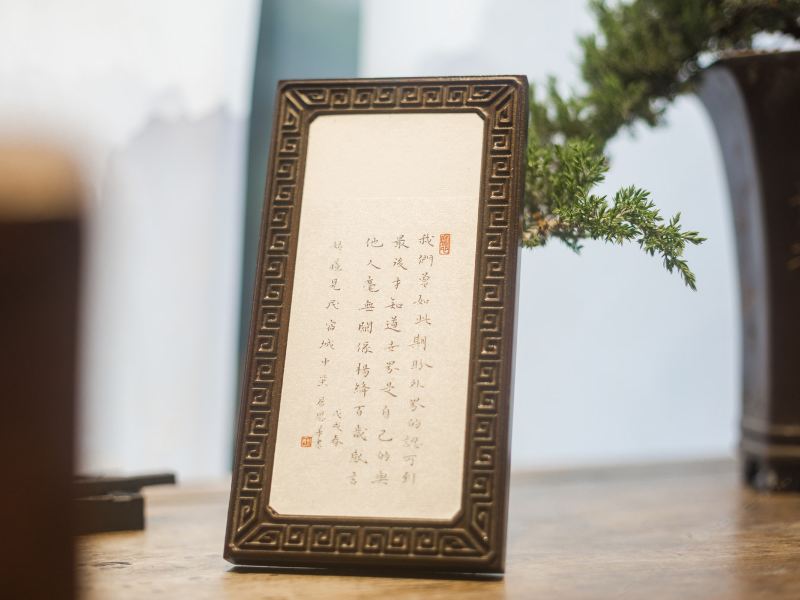 我們曾如此期盼外界的認可到
最後才知道世界是自己的與
他人毫無關係楊絳百歲感言
見民宿城中
戊戌春